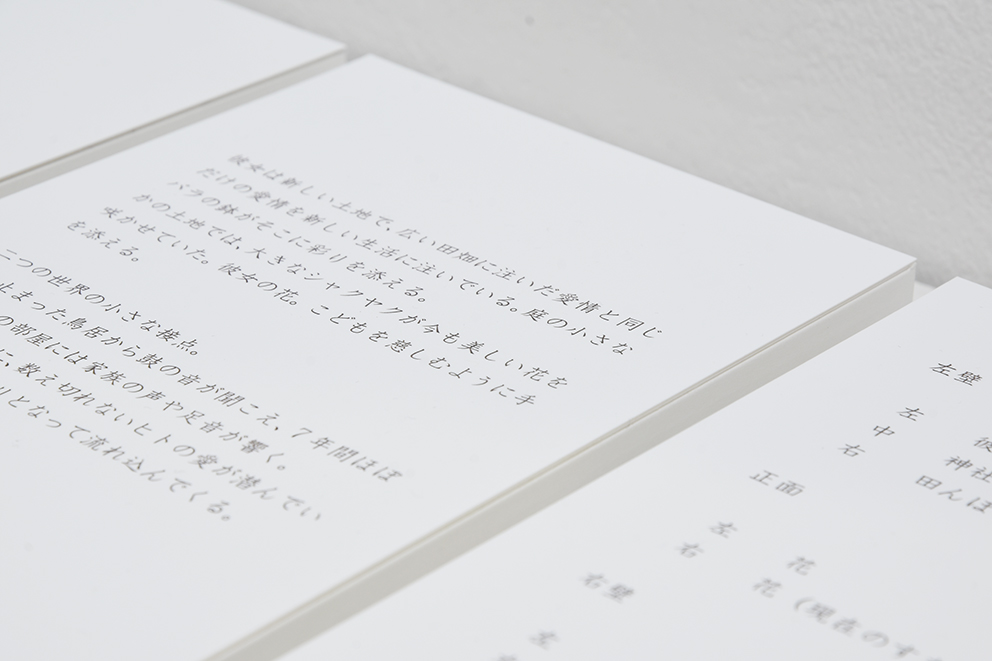 彼女は新しい土地で、広い田畑に注いだ愛情と同じ
だけの愛情を新しい生活に注いでいる。庭の小さな
バラの鉢がそこに彩りを添える。
かの土地では、大きなシャクヤクが今も美しい花を
咲かせていた。彼女の花。こどもを慈しむように手
を添える。
二つの世界の小さな接点。
止まった鳥居から鼓の音が聞こえ、7年間ほぼ
の部屋には家族の声や足音が響く。
に、数え切れないヒトの愛が潜んでい
りとなって流れ込んでくる。
左壁
左
中
右
神社
田んぼ
正面
左
右
花
花（現在の
右壁
左